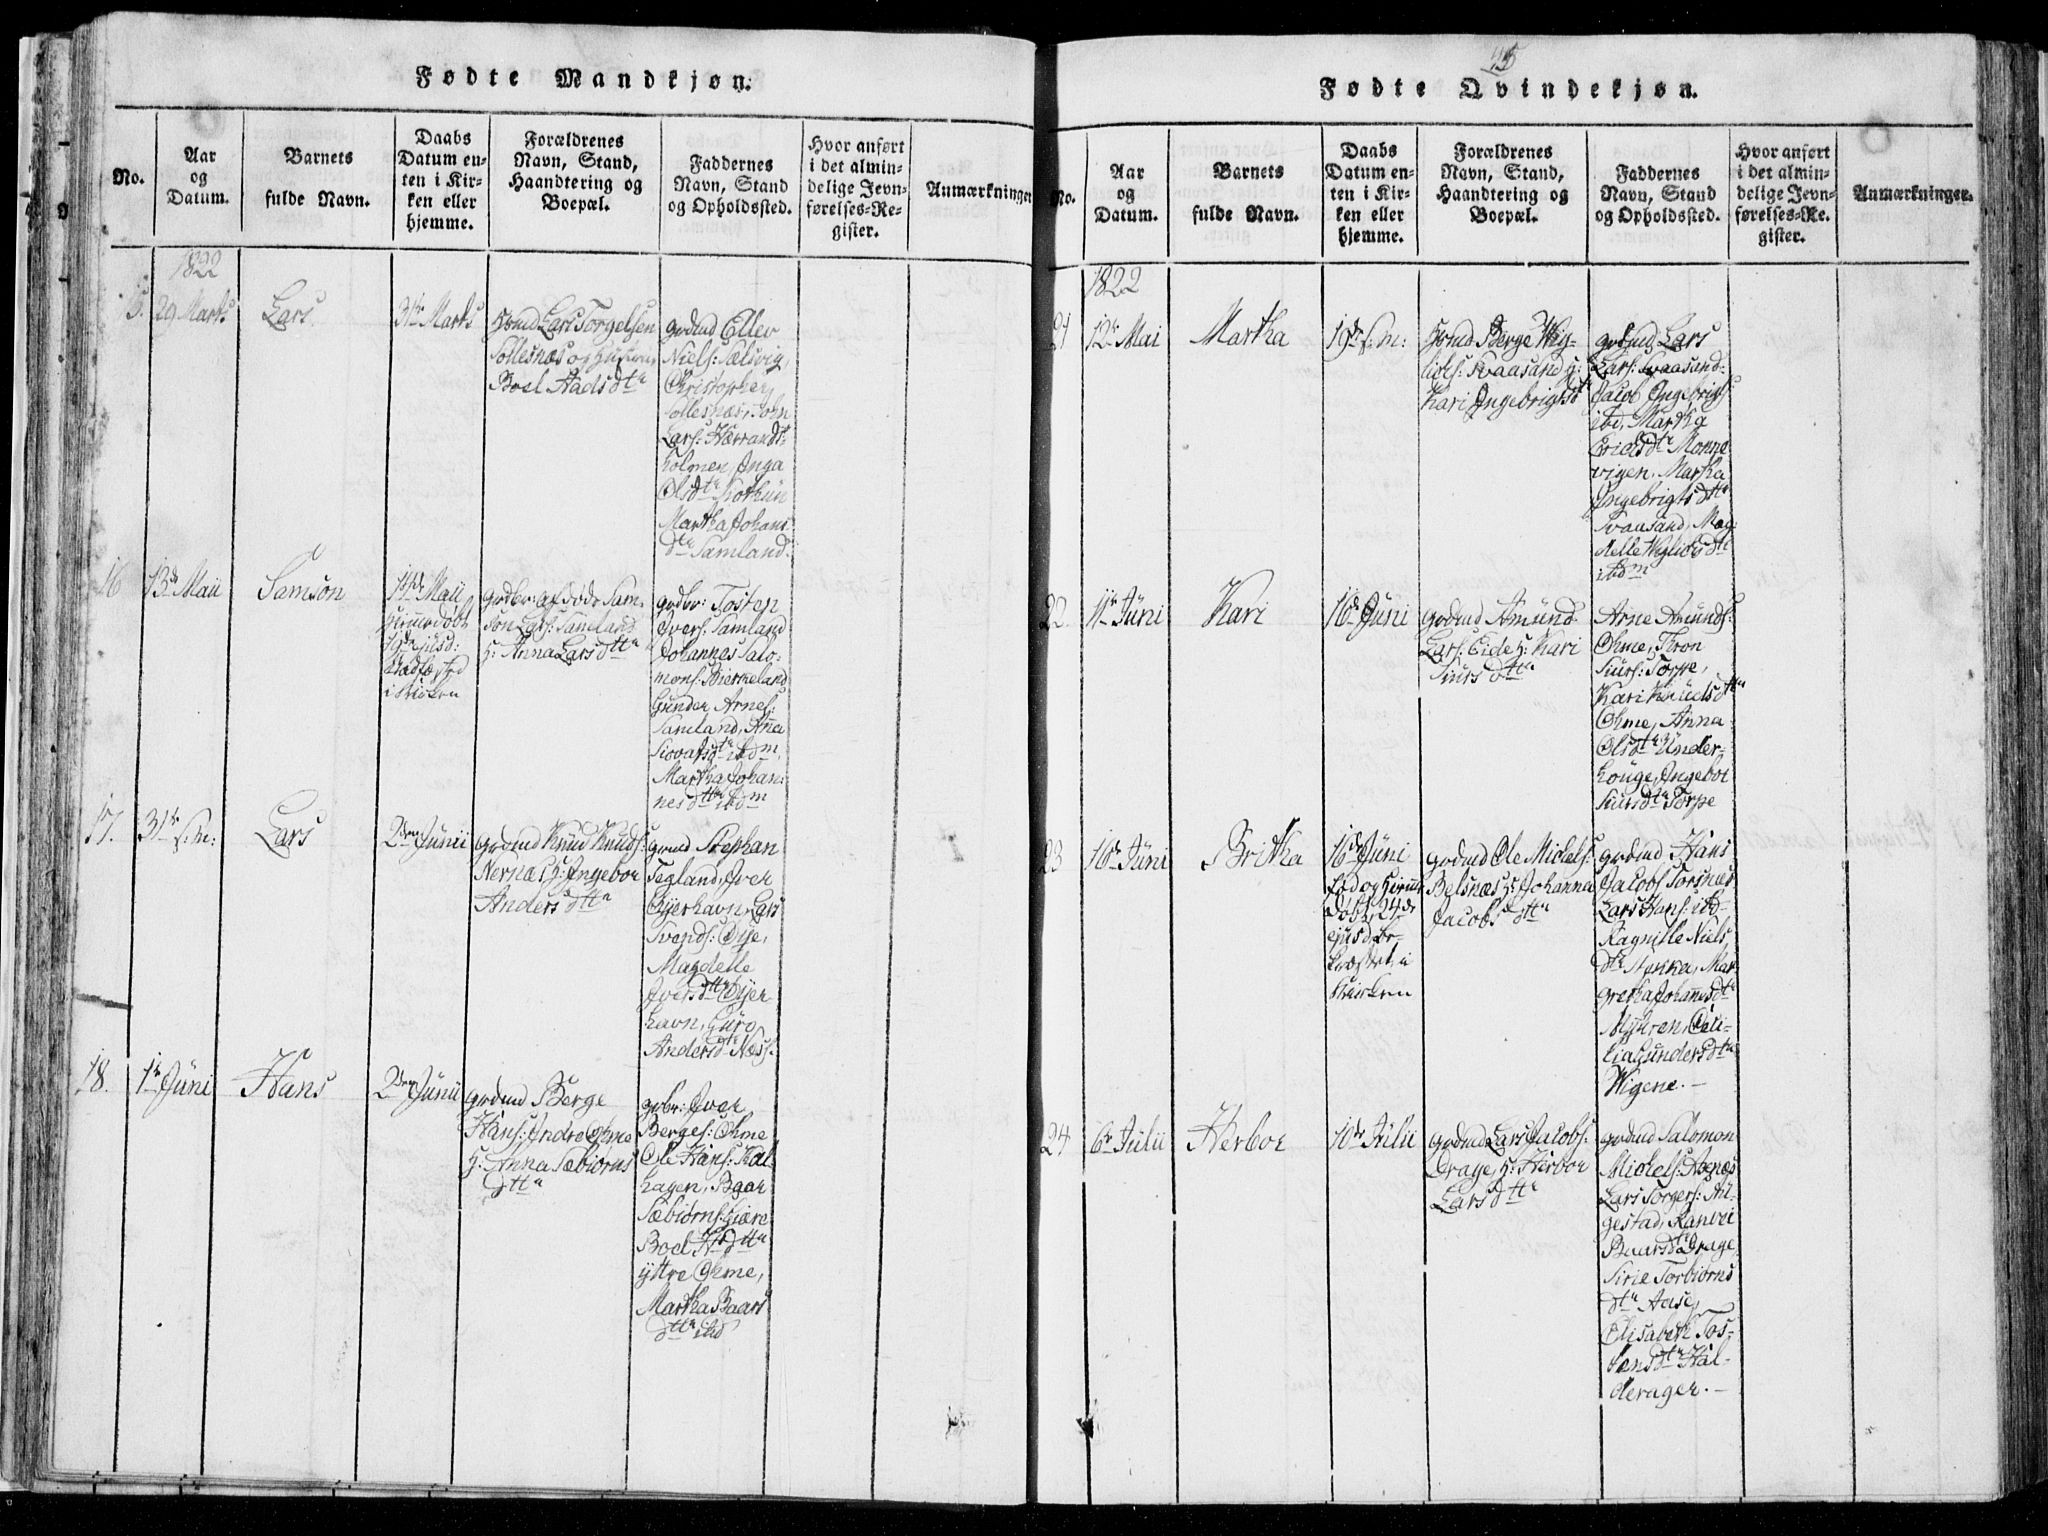 Fødte Mandkjøn.
No.
Aar
og
Datum.
Barnets
fulde Navn.
Daabs
Datum en-
ten i Kir-
ken eller
hjemme.
Forældrenes
Navn, Stand,
Haandtering og
Boepæl.
Faddernes
Navn, Stand
og Opholdssted.
Hvor anført
i det almin-
delige Jevn-
førelses-Re-
gister.
Anmærkninger
1822
15. 29 Marts
Lars
31te Marts
Lars Torgelsen
Sollesnæs og Hustru
Boel Aadsdtr
gdmd Ellev
Niels: Sælsvig,
Christopher
Sollesnæs, John
Lars: Herrands-
holmen, Inga
Olsdtr
Martha Johans
dtr Samland.
16 13de Maii
Samson
14de Maii
hiemmedøbt
19de ejusd:
stadfæsted
i Kirken
afdøde Sam-
son Lars: Samland
H: Anna Larsdttr
Tosten
Ivers: Samland
Johannes Salo-
mons: Birkeland
Gunder Arnes:
Samland, Anna
Siovatsdtr ibdm,
Martha Johan-
nesdttr ibdm
17. 31te s: M:
Lars
2den Junii
gdmd Knud Knuds:
Nernæs H: Ingebor
Andersdttr
gmd Stephan
Tegland, Iver
Øyerhavn, Lars
Svends: Øye,
Magdelle
Iversdttr Øyer-
havn, Guro
Andersdtr Næss.
18. 1te Juni
Hans
2den Junii
gdmd Berge
Hans: Indre Ohme
H: Anna Sæbiørns
dttr
gdbr: Iver
Berges: Ohme
Ole Hans: Hal-
hagen, Baar
Sæbiørns: Giære
Boel dttr
ÿttre Ohme,
Martha Baars
dttr ibd
Fødte Qvindekjøn.
No.
Aar
og
Datum.
Barnets
fulde Navn.
Daabs
Datum en-
ten i Kir-
ken eller
hjemme.
Forældrenes
Navn, Stand,
Haandtering og
Boepæl.
Faddernes
Navn, Stand
og Opholdssted.
Hvor anført
i det almin-
delige Jevn-
førelses-Re-
gister.
Anmærkninger.
1822
21 12te Mai
Martha
19de s: M:
Berge Wig-
lichs: Svaasand H:
Kari Ingebrigtsdtr
gdmd Lars
Lars: Svaasand-
Jacob Ingebrigts
ibd, Martha
Erichsdtr Monne-
vigen, Martha
Ingebrigtsdttr
Svaasand, Mag-
delle Wiglichsdtr
ibdm
22. 11te Juni
Kari
16de Juni
gdmd Amund
Lars: Eide H: Kari
Siursdttr
Arne Amunds:
Ohme, Thron
Siurs: Torpe,
Kari Knudsdttr
Ohme, Anna
Olsdtr Under-
houge, Ingebor
Siursdtr Torpe
23 16de Juni
Britha
16de Juni
fød og hiemme
døbt, 24de
ejusd: be-
kræftet i
Kirken
gdmd Ole Michels:
Belsnæs H: Johanna
Jacobsdttr
gdmd Hans
Jacobs: Torsnæs
Lars Hans: ibd-
Ragnille Niels
dtr, Mar-
gretha Johannesdtr
Myhren, Ceci-
lia Gundersdttr
Wigene. —
24 6te Julii
Herbor
10de Julii
gdmd Lars Jacobs:
Drage, H: Herbor
Larsdttr
gdmd Salomon
Michels: Axnæs
Lars Torgers: Au-
gestad, Ranvei
Baarsdtr Drage
Sirie Torbiørns
dtr Aase,
Elisabeth Tos-
tensdtr Hal-
derager. —